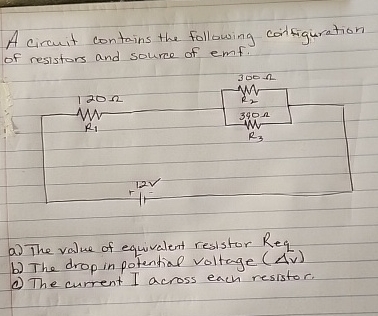 A circuit contains the following configuration
of resistors and source of emf.
300Ω
R2
120Ω
R1
390Ω
R3
12V
a) The value of equivalent resistor Req
b) The drop in potential voltage (Δv)
c) The current I across each resistor.